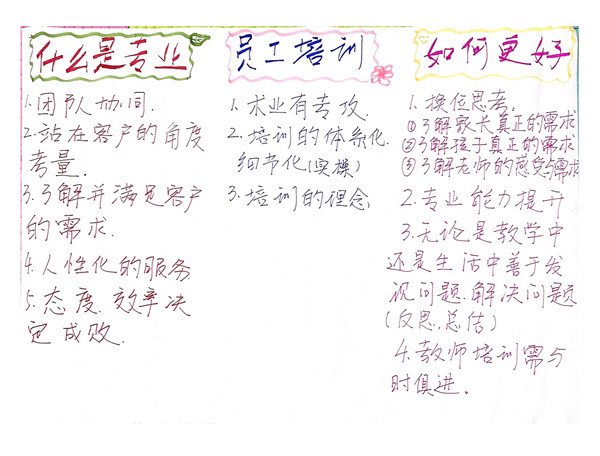 什么是专业
1.团队协同.
2.站在客户的角度
考量.
3.了解并满足客户
的需求.
4.人性化的服务
5.态度.效率决
定成败.
员工培训
1.术业有专攻.
2.培训的体系化.
细节化(实操)
3.培训的理念
如何更好
1.换位思考。
①了解家长真正的需求
②了解孩子真正的需求
③了解老师的感受与需求
2.专业能力提升
3.无论是教学中
还是生活中善于发
现问题.解决问题
(反思.总结)
4.教师培训需与
时俱进.